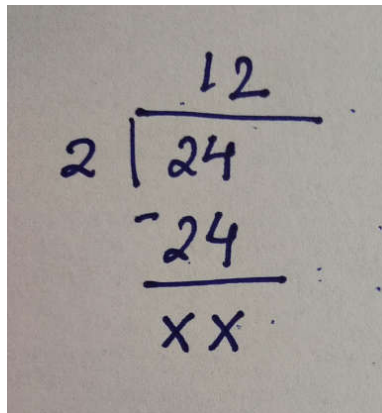 12
2 24
-24
xx